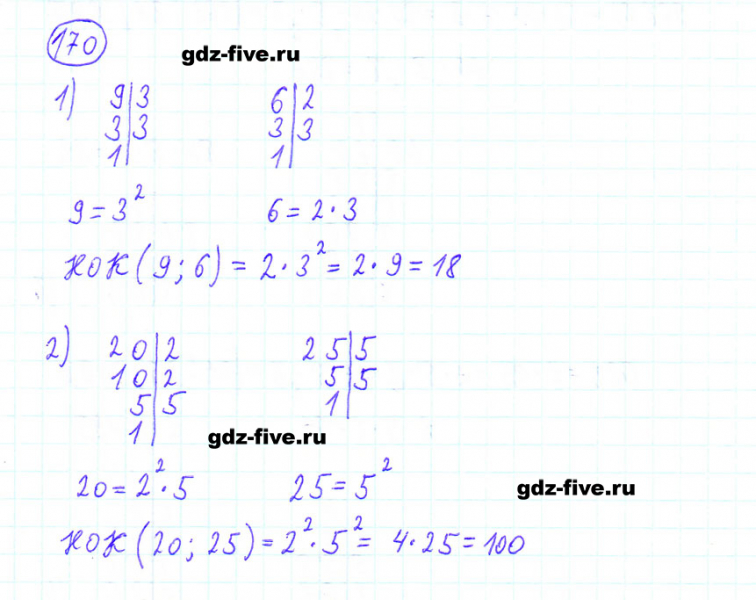 170
gdz-five.ru
1) 9|3 6|2
3|3 3|3
1| 1|
9 = 3² 6 = 2 · 3
НОК (9; 6) = 2 · 3² = 2 · 9 = 18
2) 20|2 25|5
10|2 5|5
5|5 1|
1| gdz-five.ru
20 = 2² · 5 25 = 5²
gdz-five.ru
НОК (20; 25) = 2² · 5² = 4 · 25 = 100